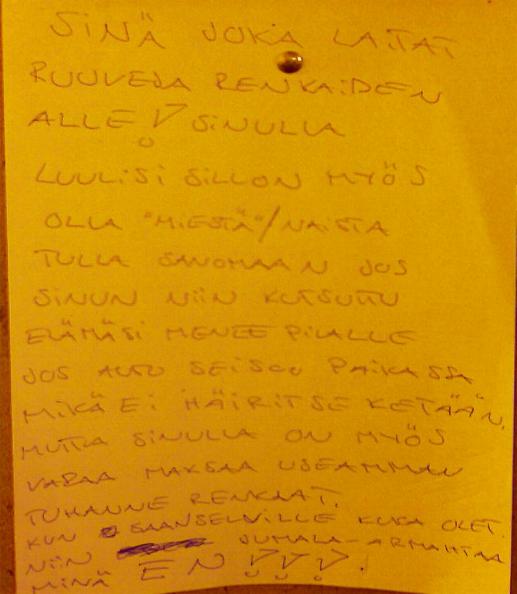 SINÄ JOKA LAITAT
RUUVEJA RENKAIDEN
ALLE! SINULLA
LUULISI SILLON MYÖS
OLLA "MIESTÄ"/NAISTA
TULLA SANOMAAN JOS
SINUN NIIN KUTSUTTU
ELÄMÄSI MENEE PILALLE
JOS AUTO SEISOO PAIKASSA
MIKÄ EI HÄIRITSE KETÄÄN.
MUTTA SINULLA ON MYÖS
VARAA MAKSAA USEAMMAN
TUHANNE RENKAAT.
KUN SAANSELVILLE KUKA OLET.
NIIN JUMALA-ARMAHTAA
MINÄ EN!!!.